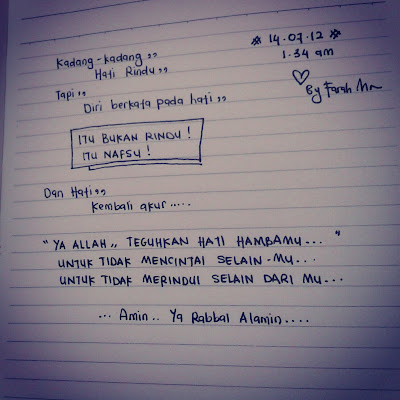 ※ 14.07.12 ※
1.34 am
♡ By Farah
Kadang-kadang ,,
Hati Rindu ,,
Tapi ,,
Diri berkata pada hati ,,
ITU BUKAN RINDU !
ITU NAFSU !
Dan Hati ,,
Kembali akur .....
" YA ALLAH ,, TEGUHKAN HATI HAMBAMU ... "
UNTUK TIDAK MENCINTAI SELAIN -MU ...
UNTUK TIDAK MERINDUI SELAIN DARI MU ...
... Amin .. Ya Rabbal Alamin ....